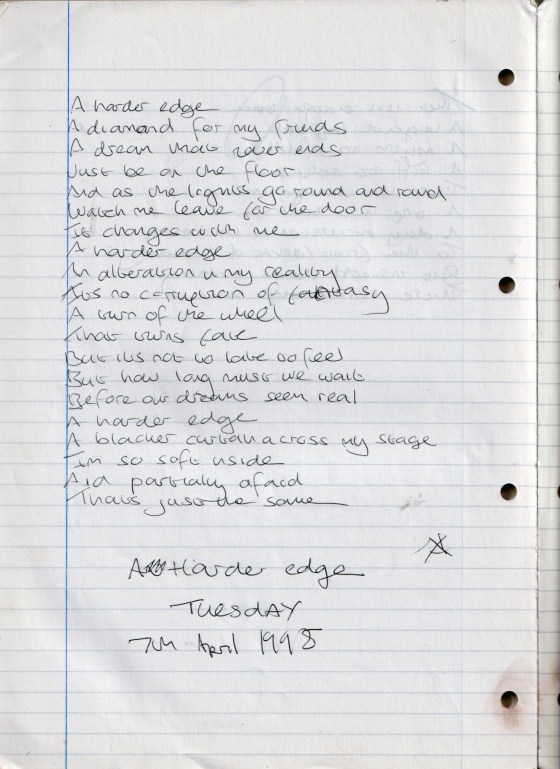 A harder edge
A diamond for my friends
A dream that never ends
Just be on the floor
And as the lights go round and round
Watch me leave for the door
It changes with me
A harder edge
An alteration in my reality
Its no corruption of fantasy
A turn of the wheel
That turns fate
But its not to late to feel
But how long must we wait
Before our dreams seem real
A harder edge
A blacker curtain across my stage
Im so soft inside
And partially afraid
Thats just the same
A Harder edge
TUESDAY
7th April 1998